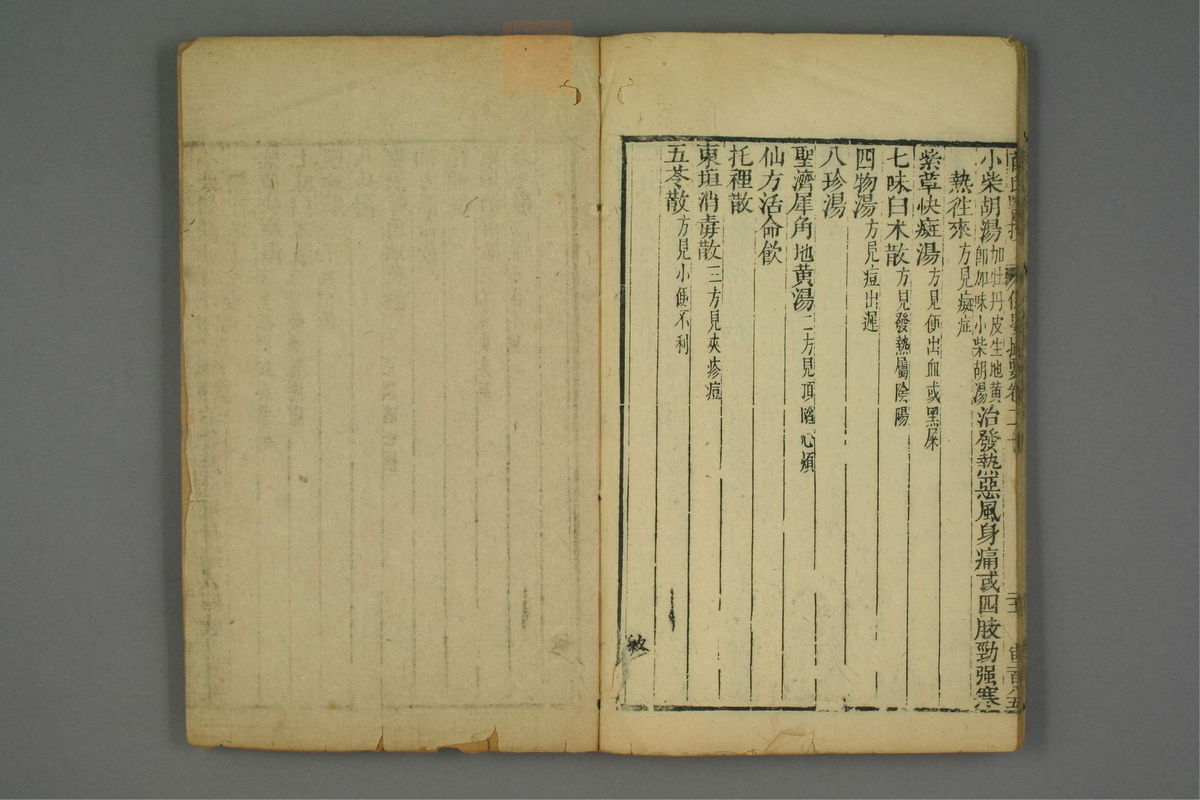 小柴胡湯加牡丹皮生地黃即加味小柴胡湯治發熱惡風身痛或四肢勁强寒
熱往來方見癍症
紫草快癍湯方見便出血或黑屎
七味白术散方見發熱屬陰陽
四物湯方見痘出遲
八珍湯
聖濟犀角地黃湯二方見頂陷心煩
仙方活命飲
托裡散
東垣消毒散三方見夾疹痘
五苓散方見小便不利
敏